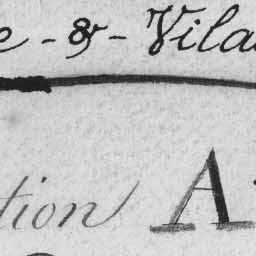 e - & - Vila
tion A